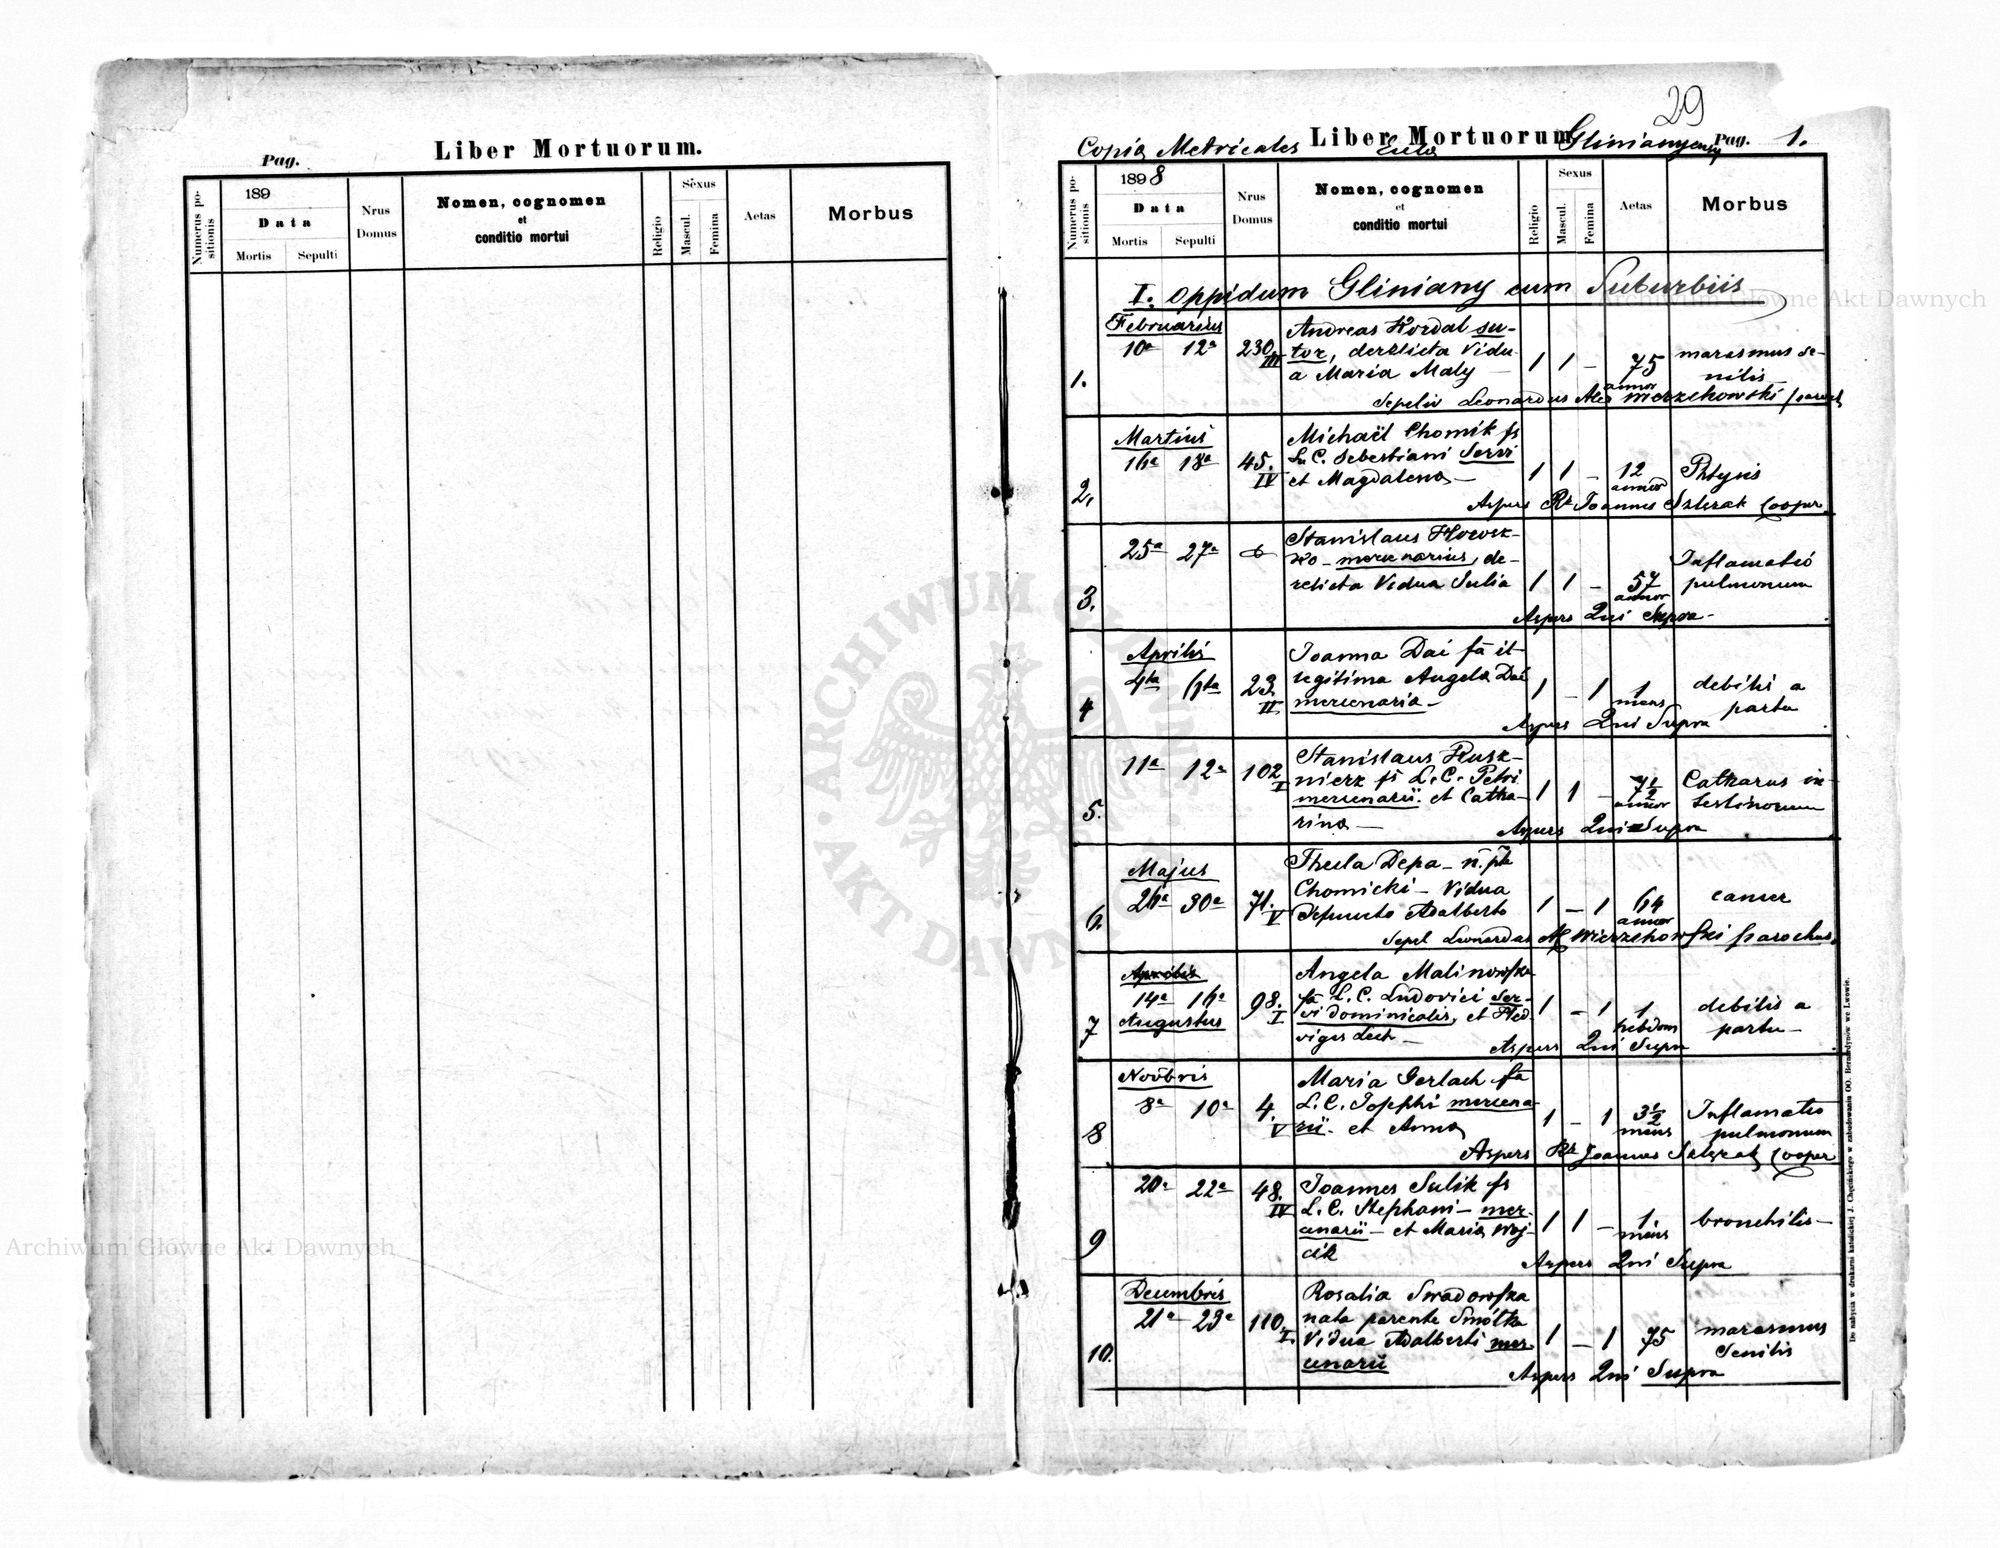 Pag.
Liber Mortuorum.
Numerus po-
sitionis
189
Data
Mortis
Sepulti
Nrus
Domus
Nomen, cognomen
et
conditio mortui
Religio
Sexus
Mascul.
Femina
Aetas
Morbus
29
Copia Metricales
Liber Mortuorum
Glinianyensy
Pag. 1.
Numerus po-
sitionis
1898
Data
Mortis
Sepulti
Nrus
Domus
Nomen, cognomen
et
conditio mortui
Religio
Sexus
Mascul.
Femina
Aetas
Morbus
I. Oppidum Gliniany cum Suburbiis
Februarius
1. 10a 12a 230. III
Andreas Kordal su-
tor, derelicta Vidu-
a Maria Maly
1 1 - 75 annor
marasmus se-
nilis
Sepeliv Leonardus Wierzchowski paroch
Martius
2. 16a 18a 45. IV
Michaël Chomik fs
L. C. Sebestiani Servi
et Magdalena -
1 1 - 12 annor
Phtysis
Aspers Rd Joannes Szlęzak Cooper
3. 25a 27a
Stanislaus Howor-
ko - mercenarius, de-
relicta Vidua Julia
1 1 - 57 annor
Inflamatio
pulmonum
Aspers Qui Supra -
Aprilis
4 4ta 6ta 23. II
Joanna Dai fa il-
legitima Angela Dai
mercenaria -
1 - 1 1 mens
debilis a
partu
Aspers Qui Supra
5. 11a 12a 102 I
Stanislaus Kusz-
nierz fs L. C. Petri
mercenarii. et Catha-
rina -
1 1 - 7½ annor
Catharus in-
testinorum
Aspers Qui Supra
Majus
6. 26a 30a 71. V
Thecla Depa - n. pte
Chomicki - Vidua
Defuncto Adalberto
1 - 1 64 annor
cancer
Sepel Leonardus Wierzchowski parochus
Aprilis
7 14a 16a 98. I
Augustus
Angela Malinowska
fa L. C. Ludovici ser-
vi dominicalis, et Hed-
vigis Lech -
1 - 1 1 hebdom
debilis a
partu -
Aspers Qui Supra
Novbris
8 8a 10a 4. V
Maria Gerlach fa
L. C. Josephi mercena-
rii. et Anna
1 - 1 3½ mens
Inflamatio
pulmonum
Aspers Rd Joannes Szlęzak Cooper
9 20a 22a 48. IV
Joannes Sulik fs
L. C. Stephani - mer-
cenarii - et Maria Woj-
cik
1 1 - 1. mens
bronchitis -
Aspers Qui Supra
Decembris
10. 21a 23a 110. I.
Rosalia Swadowska
nata parente Smółka
Vidua Adalberti mer-
cenarii
1 - 1 75
marasmus
Senilis
Aspers Qui Supra
Do nabycia w drukarni katolickiej J. Chęcińskiego w zabudowaniu OO. Bernardynów we Lwowie.
ARCHIWUM GŁÓWNE
· AKT DAWNYCH ·
Archiwum Główne Akt Dawnych
Archiwum Główne Akt Dawnych